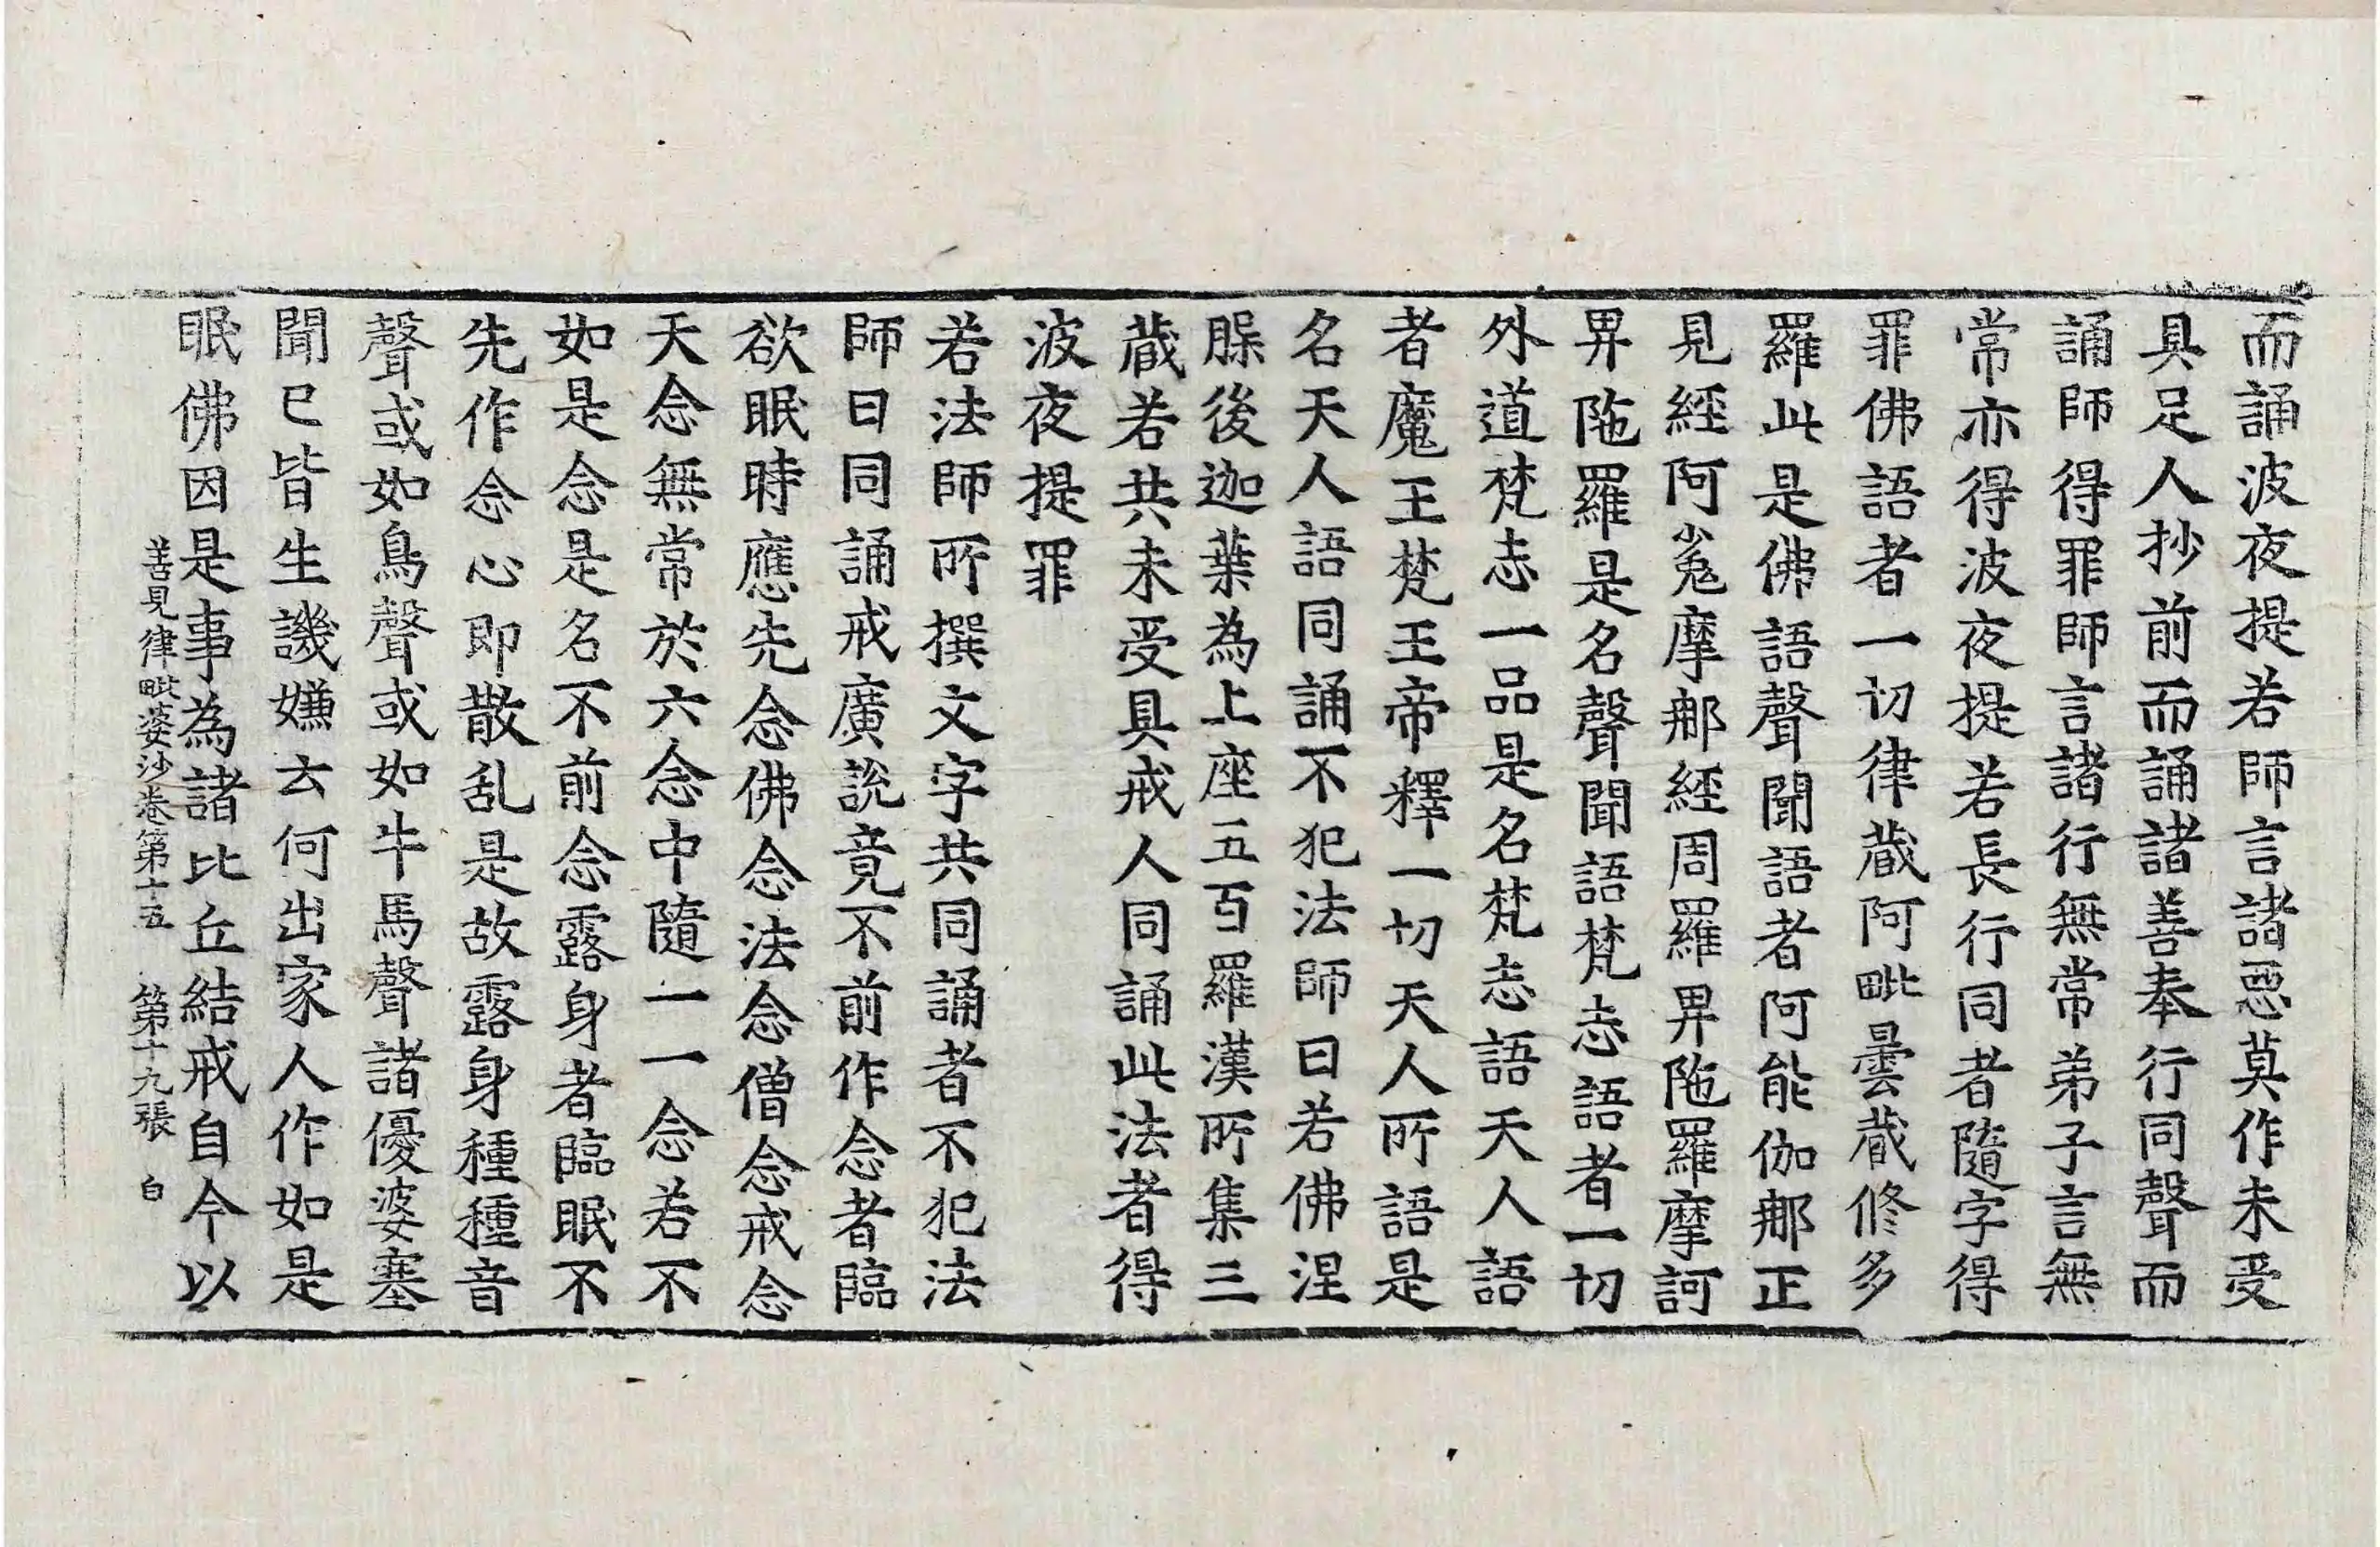 而誦波夜提若師言諸惡莫作未受
具足人抄前而誦諸善奉行同聲而
誦師得罪師言諸行無常弟子言無
常亦得波夜提若長行同者隨字得
罪佛語者一切律蔵阿毗曇蔵修多
羅此是佛語聲聞語者阿能伽那正
見經阿㝹摩那經周羅毘陁羅摩訶
毘陁羅是名聲聞語梵志語者一切
外道梵志一品是名梵志語天人語
者魔王梵王帝釋一切天人所語是
名天人語同誦不犯法師曰若佛涅
𦝫後迦葉為上座五百羅漢所集三
蔵若共未受具戒人同誦此法者得
波夜提罪
若法師所撰文字共同誦者不犯法
師曰同誦戒廣說竟不前作念者臨
欲眠時應先念佛念法念僧念戒念
天念無常於六念中隨一一念若不
如是念是名不前念露身者臨眠不
先作念心即散乱是故露身種種音
聲或如鳥聲或如牛馬聲諸優婆塞
聞已皆生譏嫌云何出家人作如是
眠佛因是事為諸比丘結戒自今以
善見律毗婆沙卷第十五 第十九張 白